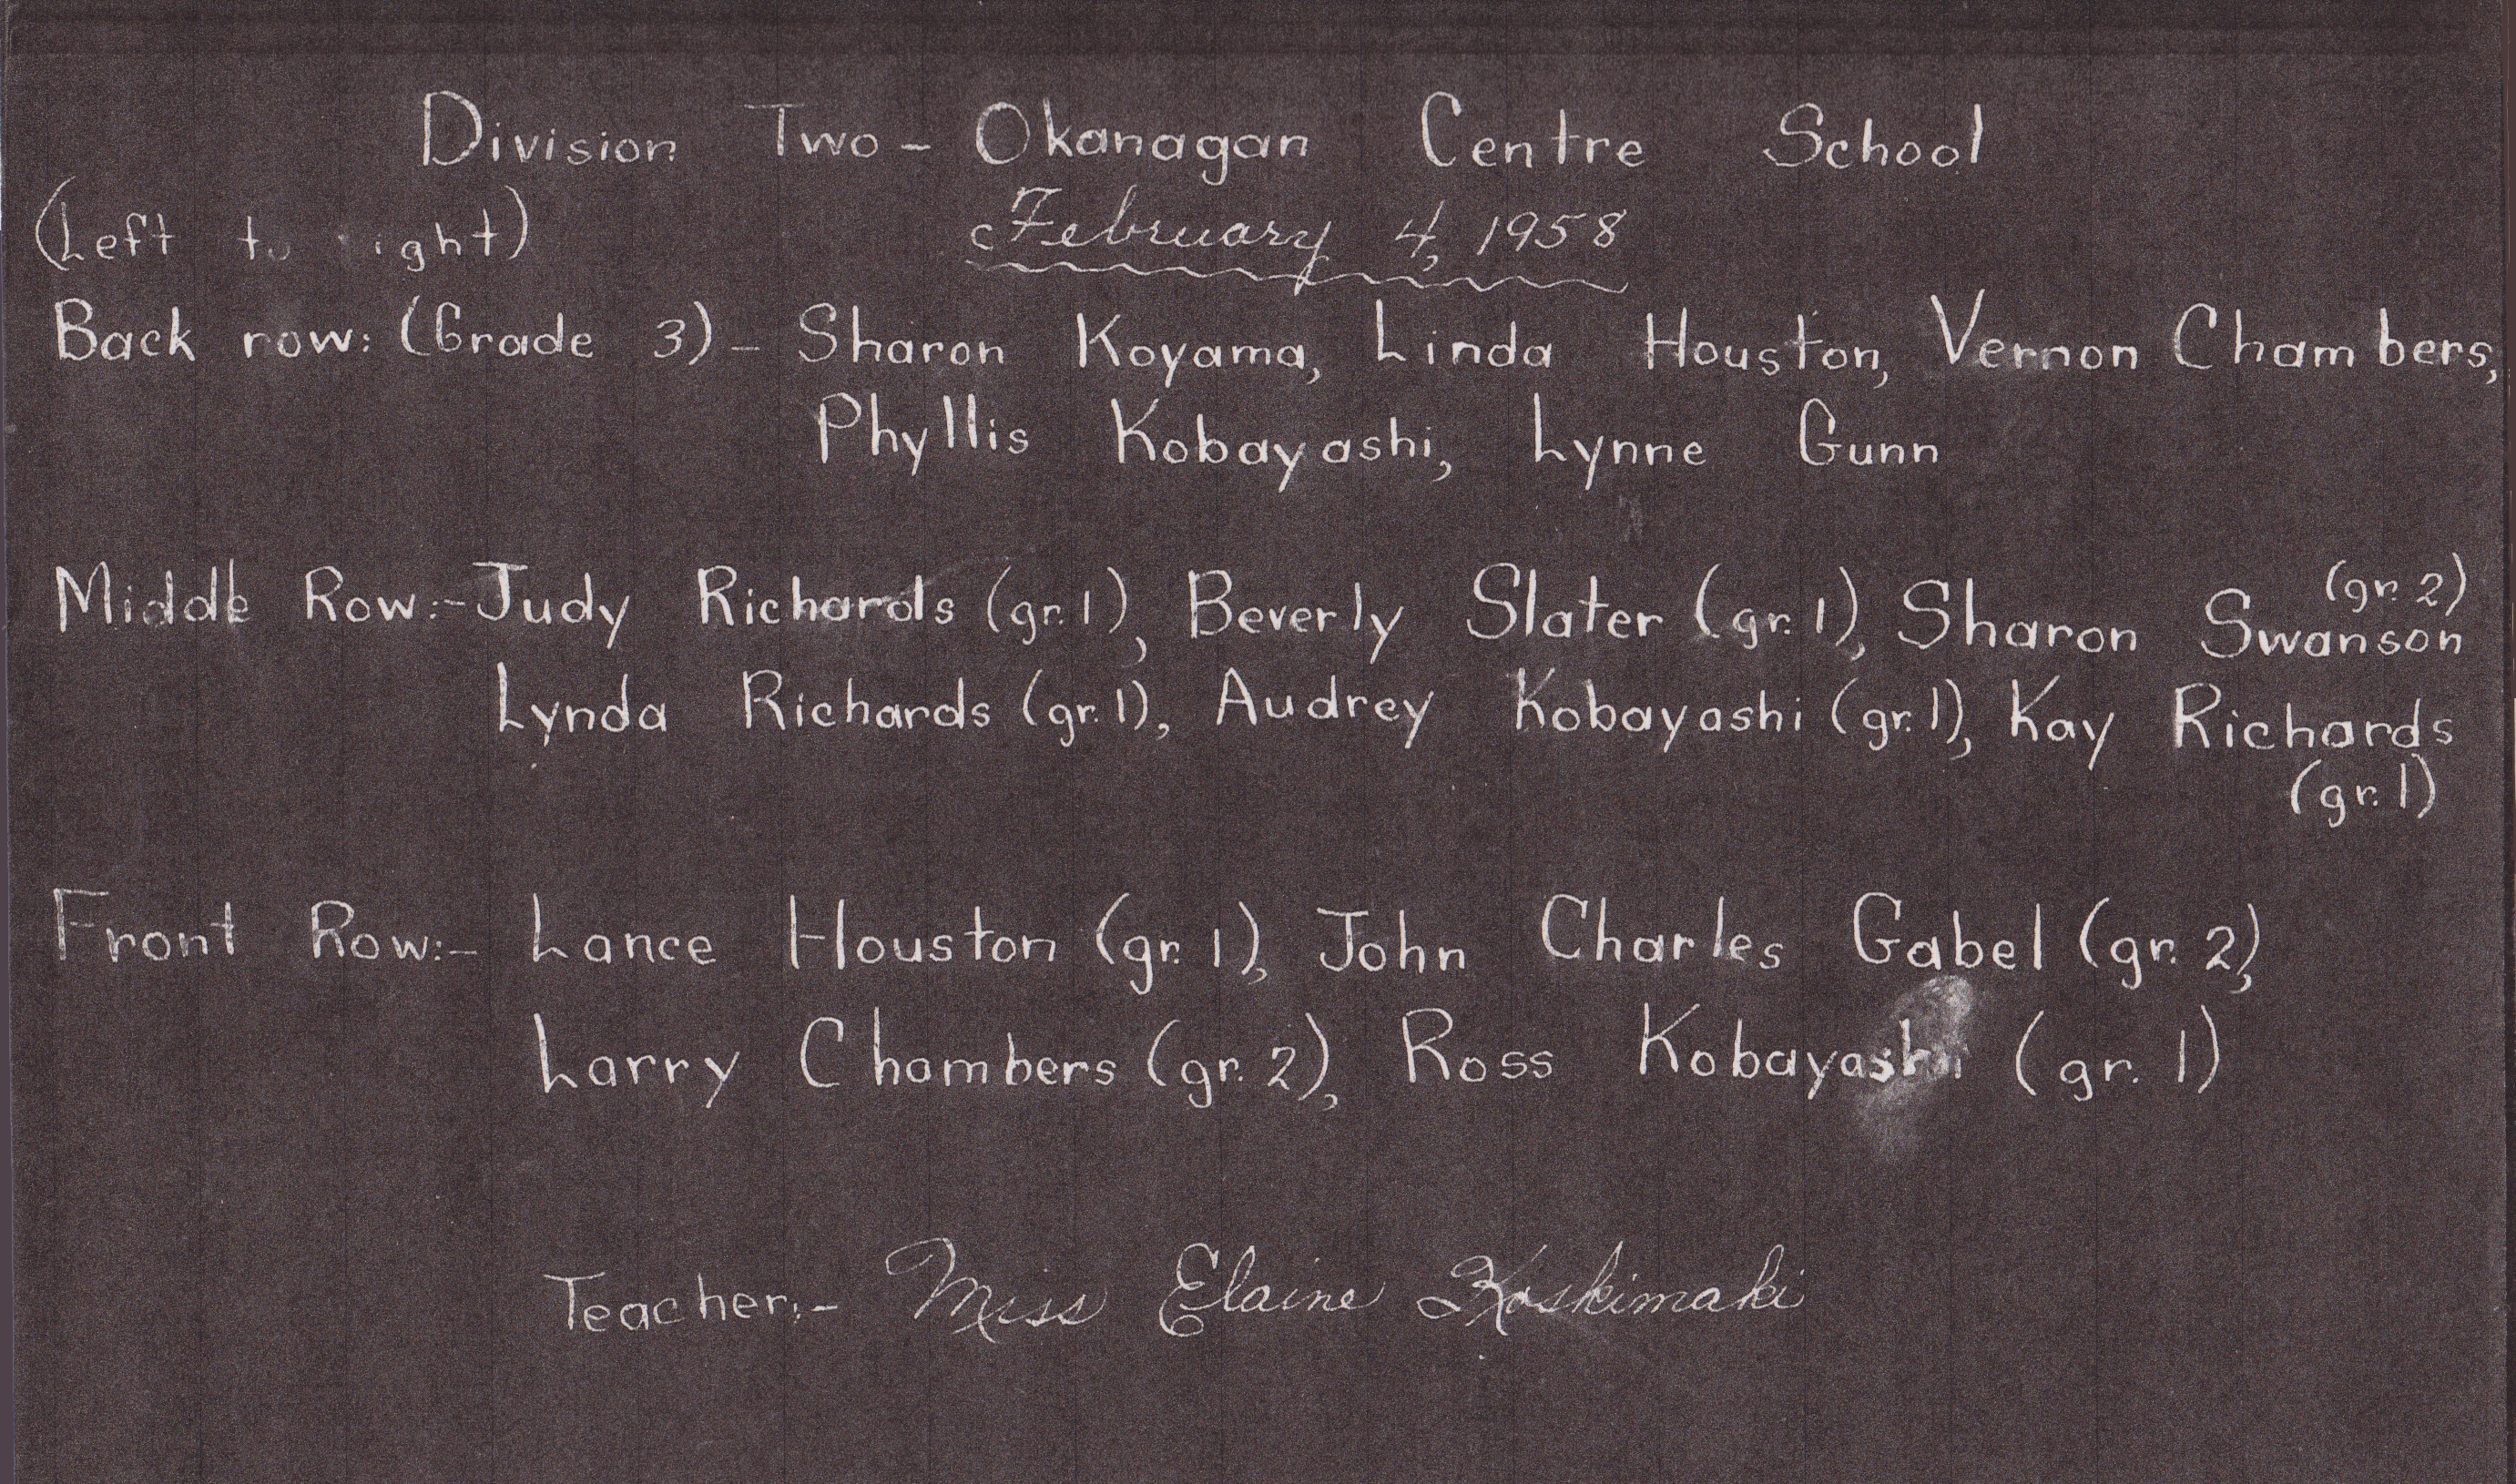 Division Two - Okanagan Centre School
(Left to right)
February 4, 1958
Back row: (Grade 3) - Sharon Koyama, Linda Houston, Vernon Chambers,
Phyllis Kobayashi, Lynne Gunn
Middle Row:- Judy Richards (gr. 1), Beverly Slater (gr. 1), Sharon Swanson (gr. 2)
Lynda Richards (gr. 1), Audrey Kobayashi (gr. 1), Kay Richards
(gr. 1)
Front Row:- Lance Houston (gr. 1), John Charles Gabel (gr. 2),
Larry Chambers (gr. 2), Ross Kobayashi (gr. 1)
Teacher:- Miss Elaine Koskimaki